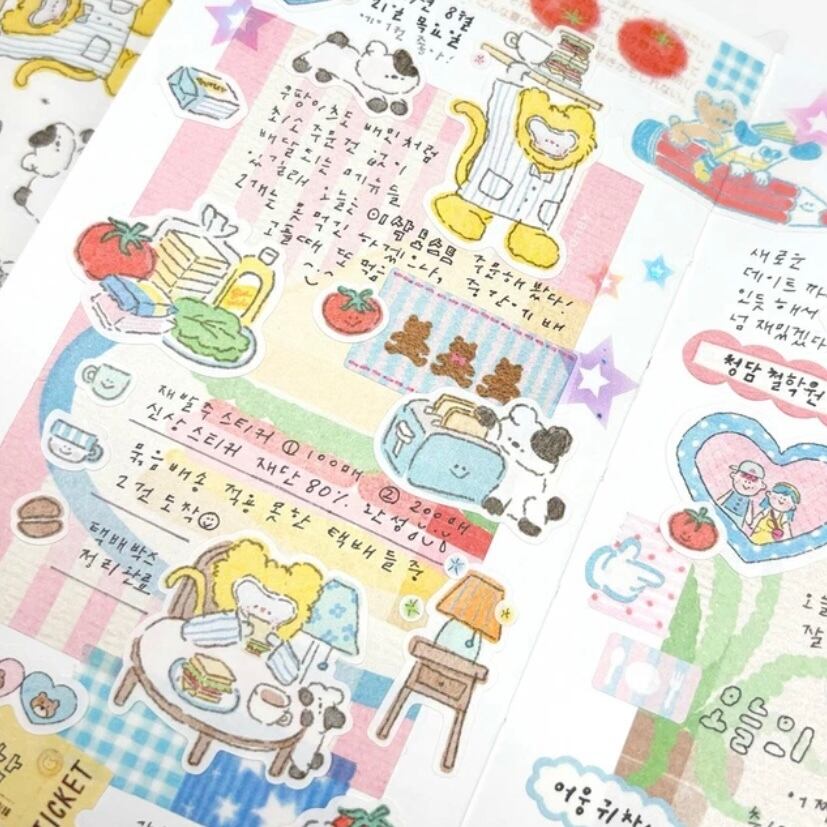 8월
21일 목요일
쿠팡이츠도 배민처럼
최소 주문건 없이
배달되는 메뉴들
오늘은 이삭샌드 주문해 봤다!
2개는 못 먹긴 하겠으나, 중간이 배
고플때 또 먹음
재발주 스티커 ① 100매 ② 200매
신상 스티커 재단 80% 완성
묶음배송 적용 못한 택배들 중
2건 도착
택배박스
정리 완료
TICKET
새로운
데이트
인듯 해서
넘 재밌겠다
청담 철학원
오늘
잘
오늘의
어웅 귀찮